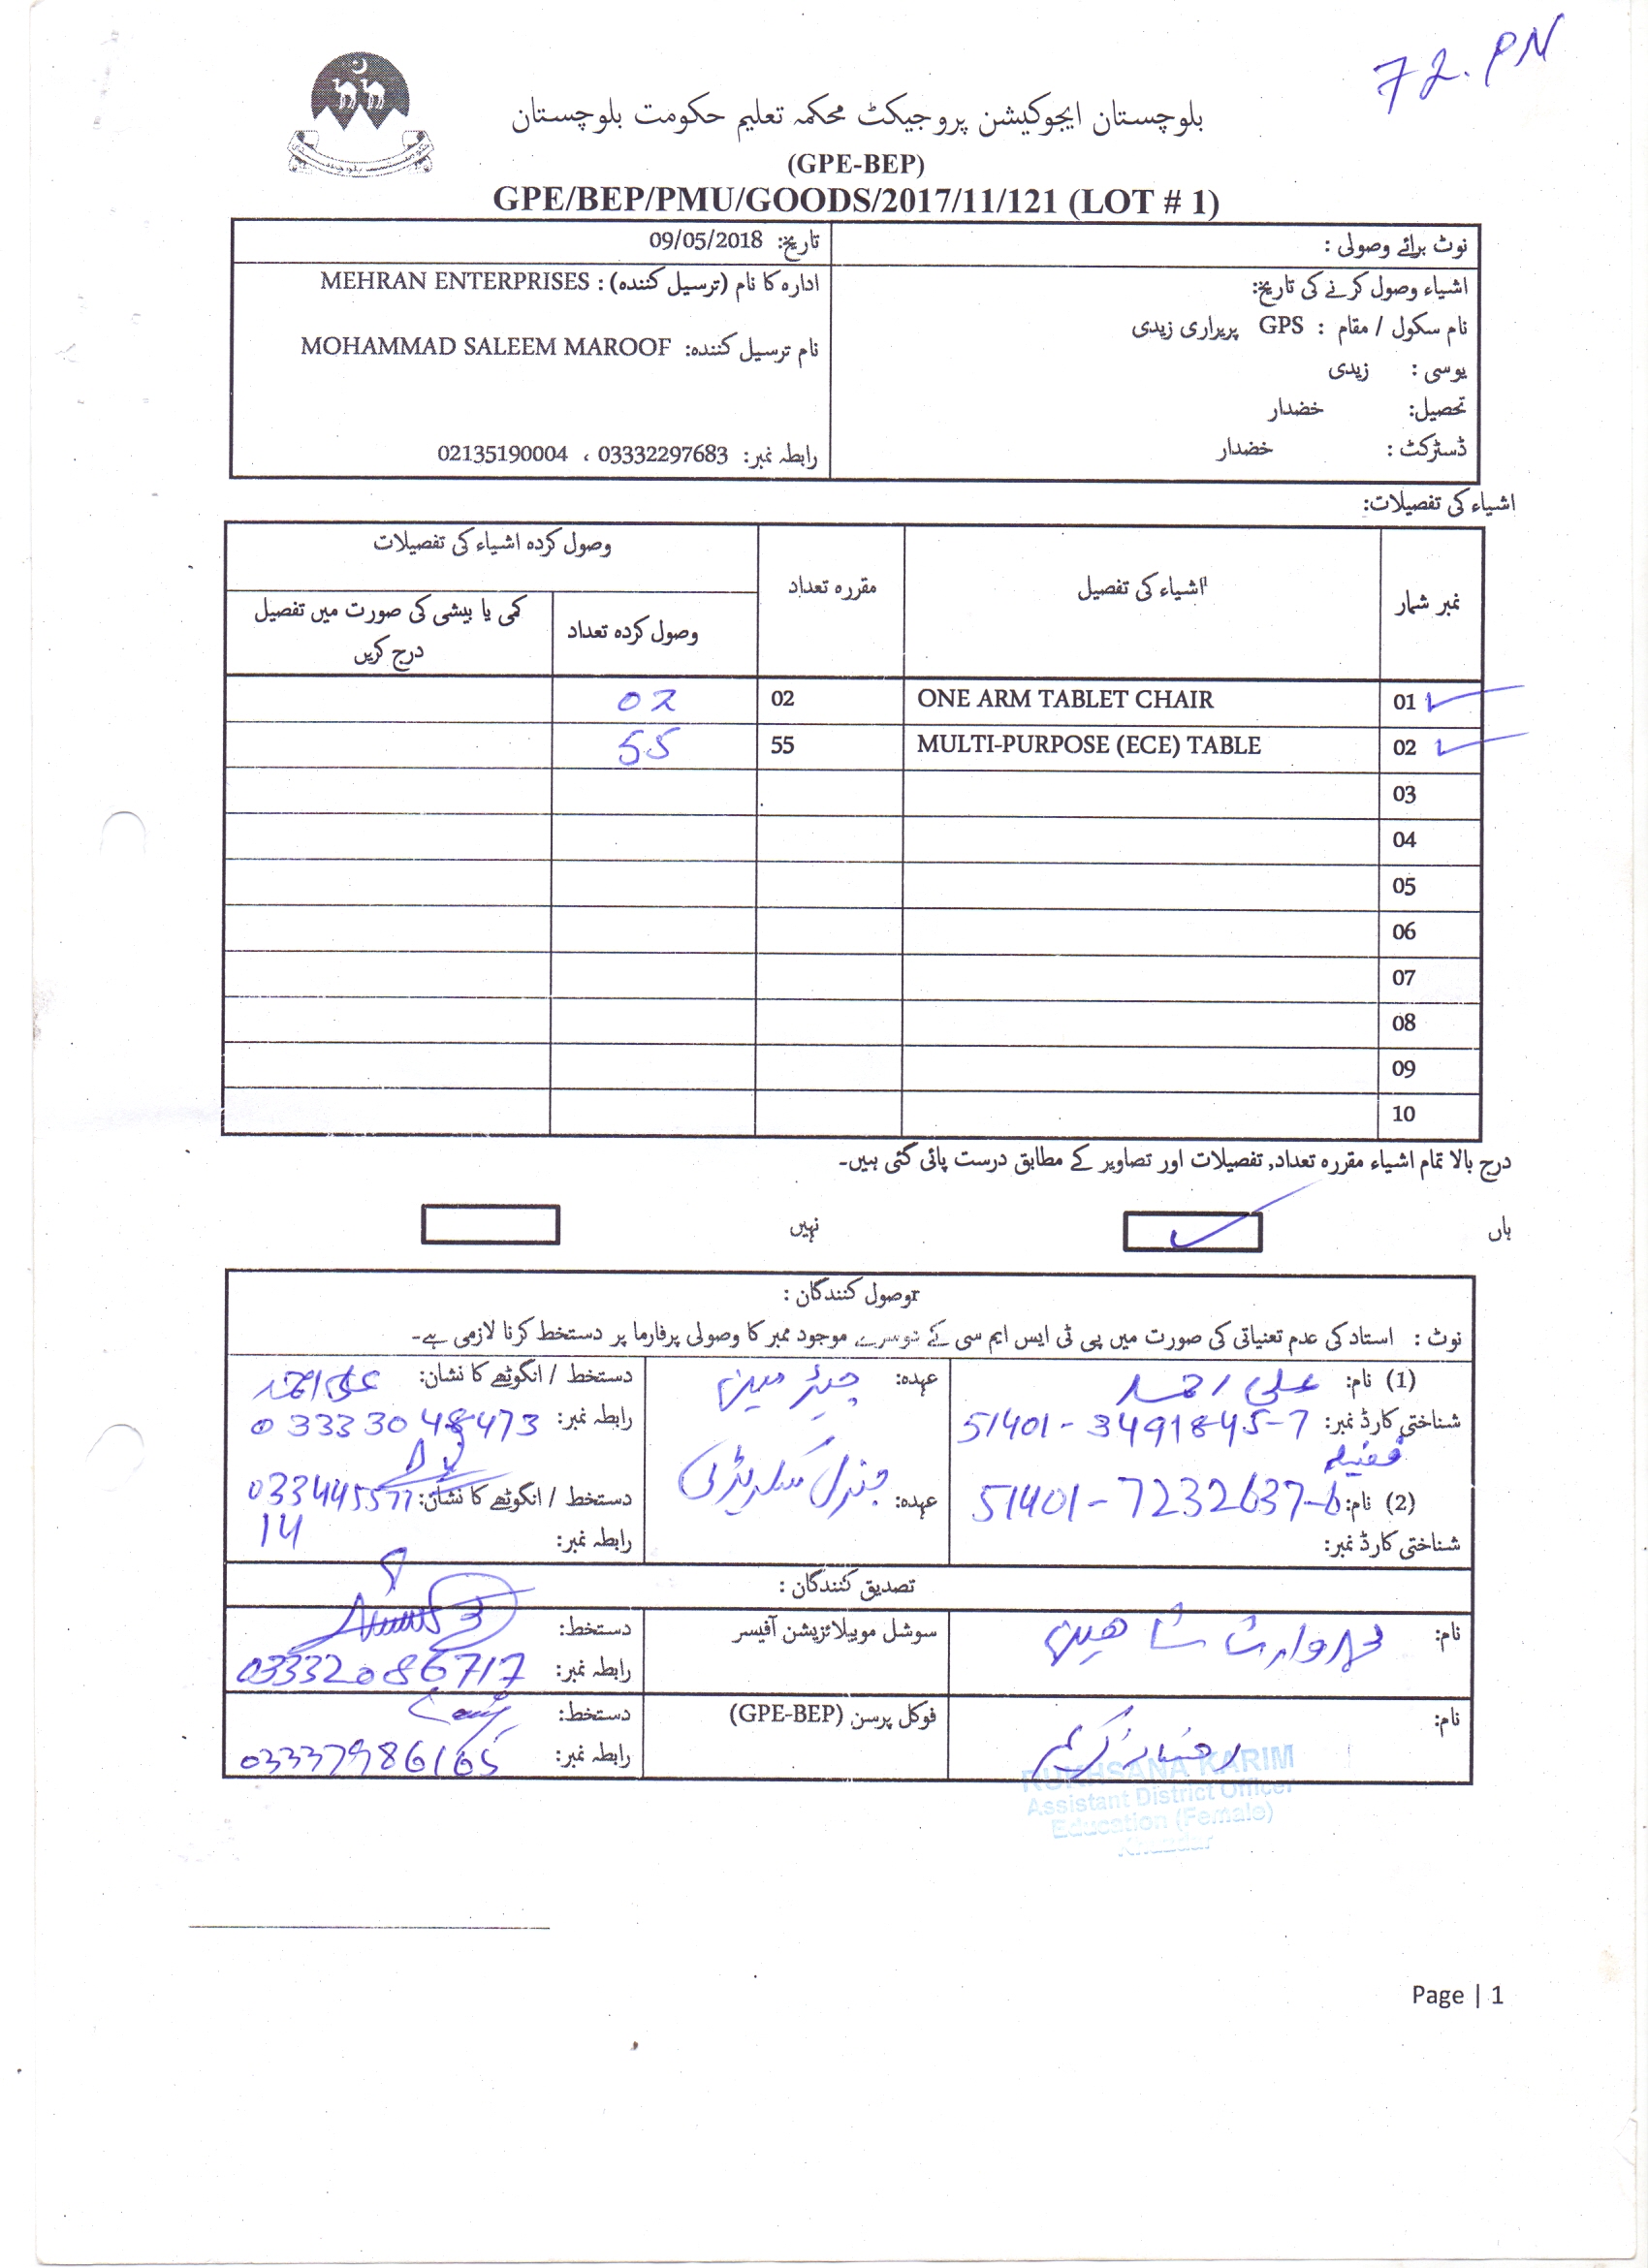 72. PN
بلوچستان ایجوکیشن پروجیکٹ محکمہ تعلیم حکومت بلوچستان
(GPE-BEP)
GPE/BEP/PMU/GOODS/2017/11/121 (LOT # 1)
نوٹ برائے وصولی :
تاریخ: 09/05/2018
اشیاء وصول کرنے کی تاریخ:
ادارہ کا نام (ترسیل کنندہ) : MEHRAN ENTERPRISES
نام سکول / مقام : GPS پریراری زیدی
نام ترسیل کنندہ: MOHAMMAD SALEEM MAROOF
یوسی : زیدی
تحصیل: خضدار
ڈسٹرکٹ : خضدار
رابطہ نمبر: 03332297683 ، 02135190004
اشیاء کی تفصیلات:
نمبر شمار
اشیاء کی تفصیل
مقررہ تعداد
وصول کردہ اشیاء کی تفصیلات
وصول کردہ تعداد
کمی یا بیشی کی صورت میں تفصیل
درج کریں
01 ONE ARM TABLET CHAIR 02 02
02 MULTI-PURPOSE (ECE) TABLE 55 55
03
04
05
06
07
08
09
10
درج بالا تمام اشیاء مقررہ تعداد, تفصیلات اور تصاویر کے مطابق درست پائی گئی ہیں۔
ہاں
نہیں
وصول کنندگان :
نوٹ : استاد کی عدم تعنیاتی کی صورت میں پی ٹی ایس ایم سی کے دوسرے موجود ممبر کا وصولی پرفارما پر دستخط کرنا لازمی ہے۔
(1) نام: علی احمد
عہدہ: چیئرمین
دستخط / انگوٹھے کا نشان: علی احمد
شناختی کارڈ نمبر: 51401-3491845-7
رابطہ نمبر: 03333048473
(2) نام: 51401-7232637-6
عہدہ: جنرل سکریٹری
دستخط / انگوٹھے کا نشان: 0334445577
14
شناختی کارڈ نمبر:
رابطہ نمبر:
تصدیق کنندگان :
نام: محمد وارث شاهین
سوشل موبیلائزیشن آفیسر
دستخط:
رابطہ نمبر: 03332086717
نام: رخسانہ کریم
فوکل پرسن (GPE-BEP)
دستخط:
رابطہ نمبر: 03337986165
RUKHSANA KARIM
Assistant District Officer
Education (Female)
Khuzdar
Page | 1